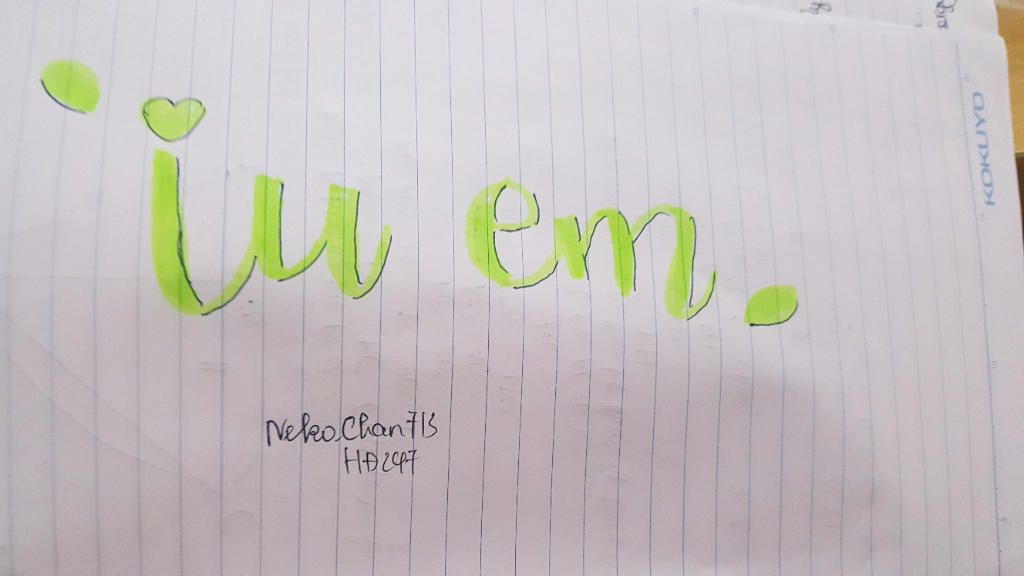 iu em.
NekoChan713
HĐ247
KOKUYO